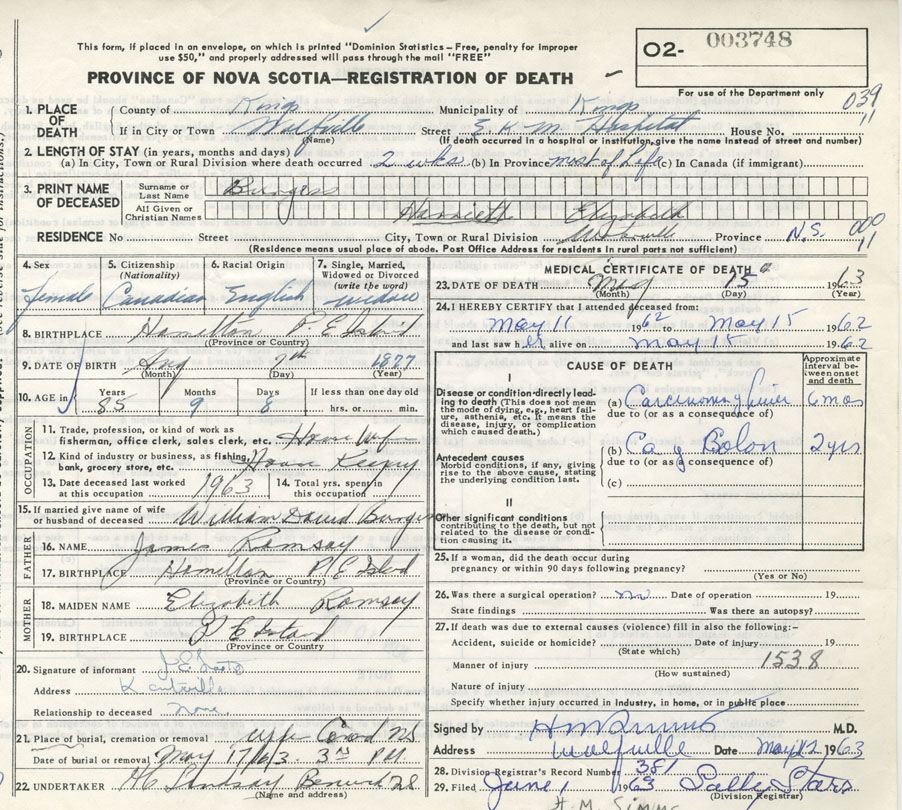 This form, if placed in an envelope, on which is printed "Dominion Statistics – Free, penalty for improper
use $50," and properly addressed will pass through the mail "FREE"
O2- 003748
PROVINCE OF NOVA SCOTIA—REGISTRATION OF DEATH
For use of the Department only
039
11
1. PLACE OF DEATH
County of Kings Municipality of Kings
If in City or Town Wolfville Street E.K.M. Hospital House No.
(Name) (If death occurred in a hospital or institution, give the name instead of street and number)
2. LENGTH OF STAY (in years, months and days)
(a) In City, Town or Rural Division where death occurred 2 wks (b) In Province most of life (c) In Canada (if immigrant)
3. PRINT NAME OF DECEASED
Surname or Last Name Burgess
All Given or Christian Names Harriett Elizabeth
000
11
RESIDENCE No Street City, Town or Rural Division Province N.S.
(Residence means usual place of abode. Post Office Address for residents in rural parts not sufficient)
4. Sex female
5. Citizenship (Nationality) Canadian
6. Racial Origin English
7. Single, Married, Widowed or Divorced (write the word) widow
8. BIRTHPLACE Hamilton P. E Island
(Province or Country)
9. DATE OF BIRTH Aug 7th 1877
(Month) (Day) (Year)
10. AGE in Years 85 Months 9 Days 8 If less than one day old hrs. or min.
OCCUPATION
11. Trade, profession, or kind of work as fisherman, office clerk, sales clerk, etc. House Wife
12. Kind of industry or business, as fishing, bank, grocery store, etc. House Keeping
13. Date deceased last worked at this occupation 1963
14. Total yrs. spent in this occupation
15. If married give name of wife or husband of deceased William David Burgess
FATHER
16. NAME James Ramsay
17. BIRTHPLACE Hamilton P E Island
(Province or Country)
MOTHER
18. MAIDEN NAME Elizabeth Ramsay
19. BIRTHPLACE P E Island
(Province or Country)
20. Signature of informant
Address Kentville
Relationship to deceased none
21. Place of burial, cremation or removal NS
Date of burial or removal May 17/63 3rd PM
22. UNDERTAKER Lindsay Berwick NS
(Name and address)
MEDICAL CERTIFICATE OF DEATH
23. DATE OF DEATH May 15 1963
(Month) (Day) (Year)
24. I HEREBY CERTIFY that I attended deceased from:
May 11 1962 to May 15 1962
and last saw her alive on May 15 1962
CAUSE OF DEATH
Approximate interval between onset and death
I
Disease or condition directly leading to death (This does not mean the mode of dying, e.g., heart failure, asthenia, etc. It means the disease, injury, or complication which caused death.)
(a) Carcinoma of liver 6 mos
due to (or as a consequence of)
Antecedent causes
Morbid conditions, if any, giving rise to the above cause, stating the underlying condition last.
(b) Ca of Colon 2 yrs
due to (or as a consequence of)
(c)
II
Other significant conditions
contributing to the death, but not related to the disease or condition causing it.
25. If a woman, did the death occur during pregnancy or within 90 days following pregnancy?
(Yes or No)
26. Was there a surgical operation? no Date of operation 19
State findings Was there an autopsy?
27. If death was due to external causes (violence) fill in also the following:–
Accident, suicide or homicide? Date of injury 19
(State which)
Manner of injury 153.8
(How sustained)
Nature of injury
Specify whether injury occurred in industry, in home, or in public place
Signed by M.D.
Address Wolfville Date May 1963
28. Division Registrar's Record Number 381
29. Filed June 1 1963 Sally Starr
(Division Registrar)